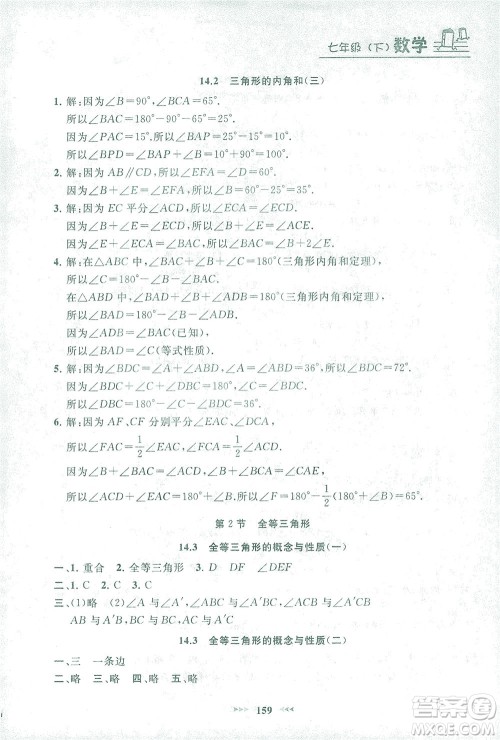 七年级（下）数学
14.2 三角形的内角和(三)
1. 解：因为∠B=90°，∠BCA=65°.
所以∠BAC=180°-90°-65°=25°.
因为∠PAC=15°.所以∠BAP=10°.
所以∠BPD=∠BAP+∠B=10°+90°=100°.
2. 解：因为AB∥CD，所以∠EFA=∠D=60°.
因为∠B+∠E=∠EFA，所以∠B=60°-25°=35°.
3. 解：因为EC平分∠ACD，所以∠ACE=∠ECD.
因为∠B+∠E=∠ECD，所以∠B+∠E=∠ACE.
4. 解：在△ABC中，∠BAC+∠B+∠C=180°(三角形内角和定理)，
所以∠BAC=180°-∠B-∠C.
在△ABD中，∠BAD+∠B+∠ADB=180°(三角形内角和定理)，
所以∠ADB=180°-∠BAD-∠B.
因为∠ADB=∠BAC(已知)，
所以∠BAD=∠C(等式性质).
5. 解：因为∠BDC=∠A+∠ABD，所以∠BDC=2∠A.
因为∠BDC+∠C+∠DBC=180°，所以∠BDC=∠C=72°.
所以∠DBC=180°-∠C-∠BDC=36°.
6. 解：因为AF、CF分别平分∠EAC、∠ACD，
所以∠FAC=1/2∠EAC，∠FCA=1/2∠ACD.
因为∠ACD=∠BAC+∠B，
所以∠ACD+∠EAC=180°+∠B，所以∠F=180°-1/2(180°+∠B).
第2节 全等三角形
14.3 全等三角形的概念与性质(一)
一、1. 重合 2. 全等三角形 3. D DF ∠DEF
二、1. C 2. C
三、(1)略 (2)∠A与∠A′、∠B与∠B′、∠C与∠C′
AB与A′B′、BC与B′C′、AC与A′C′
14.3 全等三角形的概念与性质(二)
一、三 一条边
二、略 三、略 四、略
159